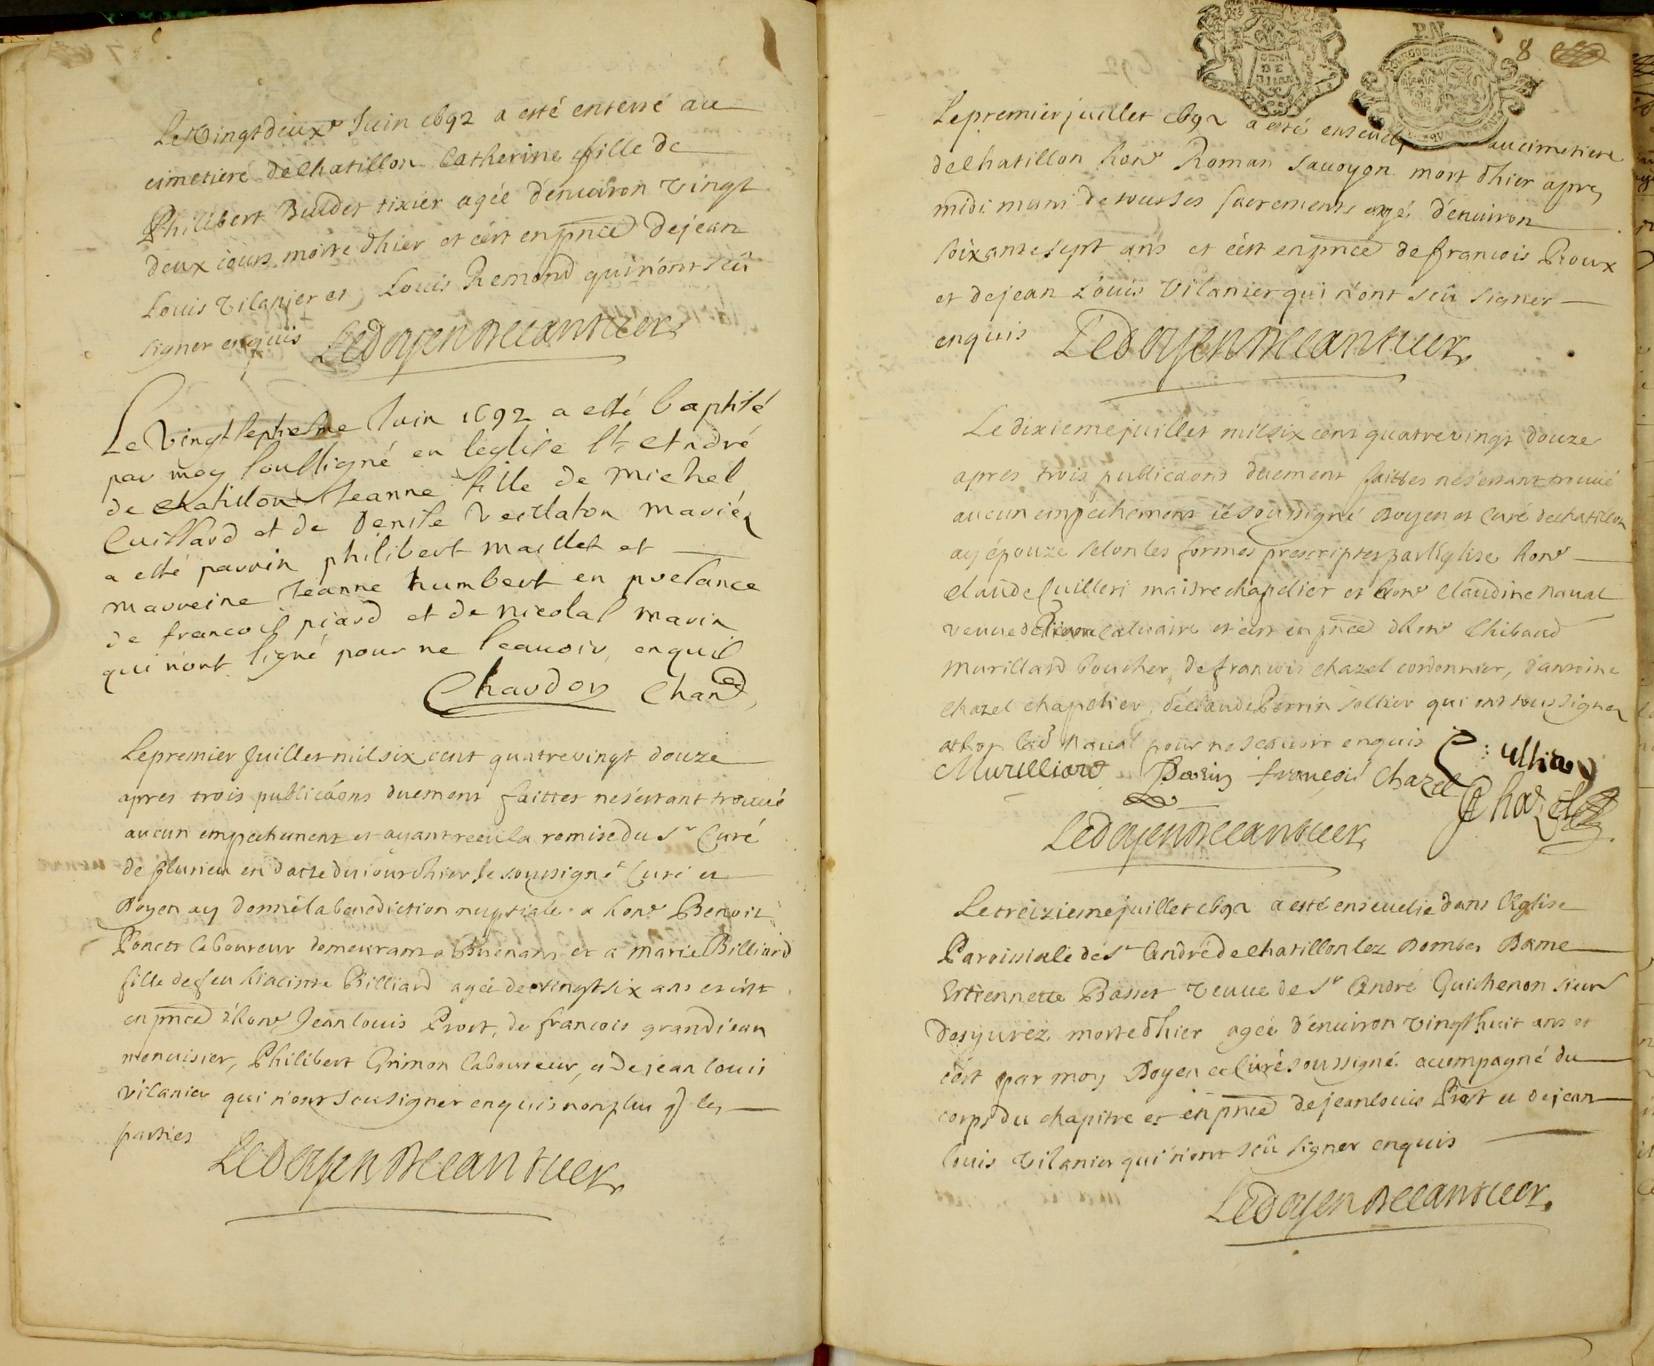 Le vingt deuxe Juin 1692 a esté enterré au
cimetieré de Chatillon Catherine fille de
Philibert Buidet tixier agée d'enuiron vingt
deux iours morte d'hier et c'est en pnce de jean
Louis Vilanier et Louis Remond qui n'ont sceû
signer enquis Le doyen Decantuer
Le vingt septiesme Juin 1692 a esté baptisé
par moy soussigné en l'eglise St Andrè
de chatillon Jeanne fille de Michel
Cuillard et de Denise mariés
a esté parrin philibert maillet et
marreine Jeanne humbert en presance
de francois piard et de nicolas marin
qui n'ont signé pour ne scauoir enquis
Chaudon Chane
Le premier Juillet mil six cent quatre vingt douze
apres trois publicaons duement faittes ne s'estant trouué
aucun empechement et ayant receu la remise du Sr Curé
de flurieu en datte du jour d'hier Je sousigné Curé et
Doyen ay donné la benediction nuptiale a honr Benoit
Poncet laboureur demeurant a Buenans et a Marie Billiard
fille de feu hiacinte Billiard agée de vingt six ans et c'est
en pnce d'honr Jean louis Prost, de francois grandjean
menuisier, Philibert Grimon laboureur, et de jean louis
vilanier qui n'ont sceu signer enquis non plus q) les
parties
Le doyen Decantuer
8
Le premier juillet 1692 a esté enseueli au cimetiere
de chatillon honr Roman Sauoyon mort d'hier apres
midi muni de tous ses sacrements agé d'enuiron
soixante sept ans et c'est en pnce de francois Proux
et de jean Louis Vilanier qui n'ont sceû signer
enquis Le doyen Decantuer
Le dixieme juillet mil six cent quatre vingt douze
apres trois publicaons duement faittes ne s'estant trouué
aucun empéchement je soussigné Doyen et Curé de chatillon
ay épouzé selon les formes prescriptes par l'Eglise honr
Claude Cuilleri maistre chapelier et honr Claudine Naual
veuue de et c'est en pnce d'honr Thibaud
Murillard boucher, de francois chazel cordonnier, d'antoine
chazel chapelier, de claude Perrin sellier qui ont tous signez
et non lad Naual pour ne scauoir enquis
Murilliard Perrin francois Chazel Chazel
Le doyen Decantuer
Le treizieme juillet 1692 a esté enseuelie dans l'Eglise
Paroissiale de St André de chatillon lez Dombes Dame
Estiennette Basset veuue de Sr André Guichenon sieur
Desjurez morte d'hier agée d'enuiron vingt huit ans et
c'est par moy Doyen et Curé soussigné acompagné du
corps du chapitre et en pnce de jean louis Prost et de jean
louis Vilanier qui n'ont sceû signer enquis
Le doyen Decantuer